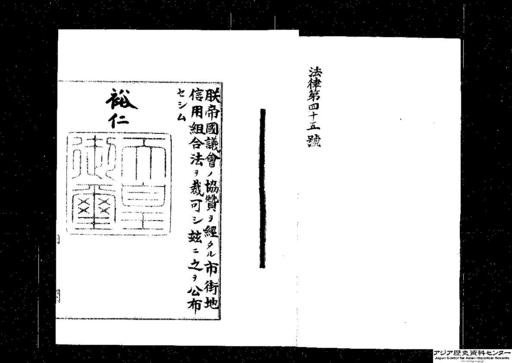 法律第四十五號
朕帝國議會ノ協贊ヲ經タル市街地
信用組合法ヲ裁可シ玆ニ之ヲ公布
セシム
裕仁
天皇
御璽
アジア歴史資料センター
Japan Center for Asian Historical Records